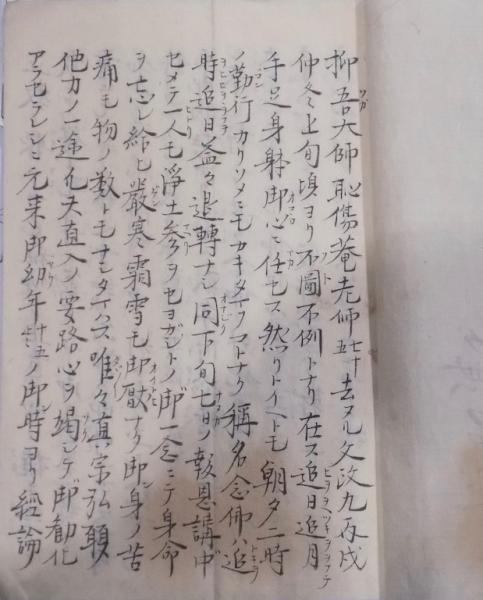 抑吾大師恥傷菴老师五十七去ヌル文政九丙戌
仲冬上旬頃ヨリ不圖不例トナリ在ス追日追月
手足身躰御心ニ任セス然リトイヘトモ朝夕二時
ノ勤行カリソメニモカキタマフコトナク稱名念仰ハ追
時追日益々退轉ナシ同下旬七日ノ報恩講中
セメテ一人モ浄土参ヲセヨガシトノ御一念ニテ身命
ヲ忘レ給ヒ嚴寒霜雪モ御厭ナク御身ノ苦
痛モ物ノ数トモナシタマハス唯々真宗弘願
他力ノ一途凡夫直入ノ要路心ヲ竭シテ御勧化
アラセラレシニ元来御幼年十五ノ御時ヨリ經論